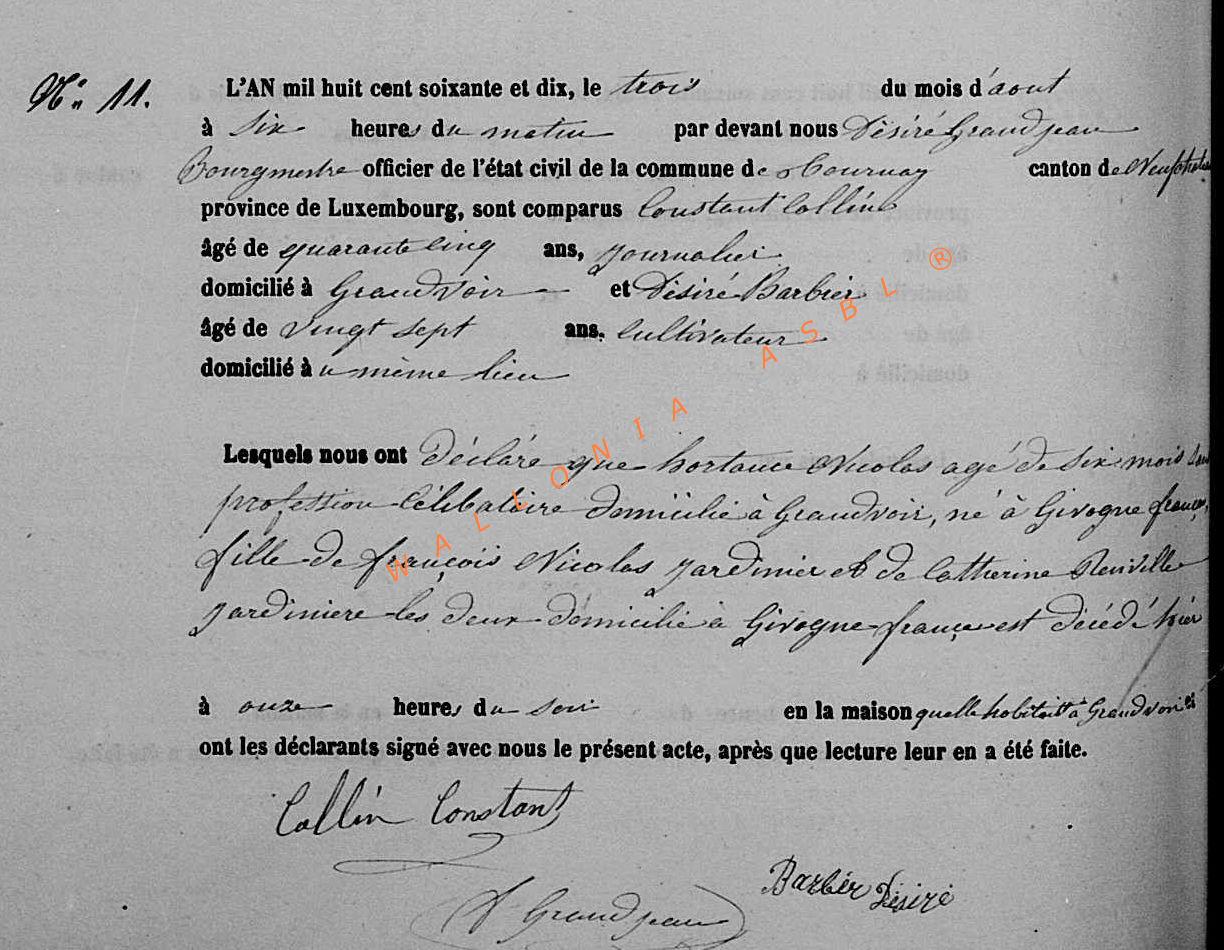 N° 11.
L'AN mil huit cent soixante et dix, le trois du mois d'aout
à six heures du matin par devant nous Désiré Grandjean
Bourgmestre officier de l'état civil de la commune de Tournay canton de Neufchateau
province de Luxembourg, sont comparus Constant Collin
âgé de quarante cinq ans, journalier
domicilié à Grandvoir et Désiré Barbier
âgé de vingt sept ans. Cultivateur
domicilié au même lieu
Lesquels nous ont déclaré que hortance Nicolas agé de six mois sans
profession célibataire domicilié à Grandvoir, né à Givogne france,
fille de françois Nicolas jardinier et de Catherine
jardiniere les deux domicilié à Givogne france est décédé hier
à onze heures du soir en la maison quelle habitait à Grandvoir et
ont les déclarants signé avec nous le présent acte, après que lecture leur en a été faite.
Collin Constant
Barbier Désiré
D Grandjean
WALLONIA ASBL ®